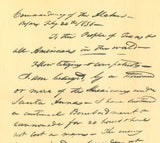 Commandancy of the Alamo
Bejar, Feby 24th 1836
To the People of Texas &
all Americans in the world
Fellow Citizens & compatriots
I am besieged by a thousand
or more of the Mexicans under
Santa Anna. I have sustained
a continual Bombardment &
cannonade for 24 hours & have
not lost a man. The enemy